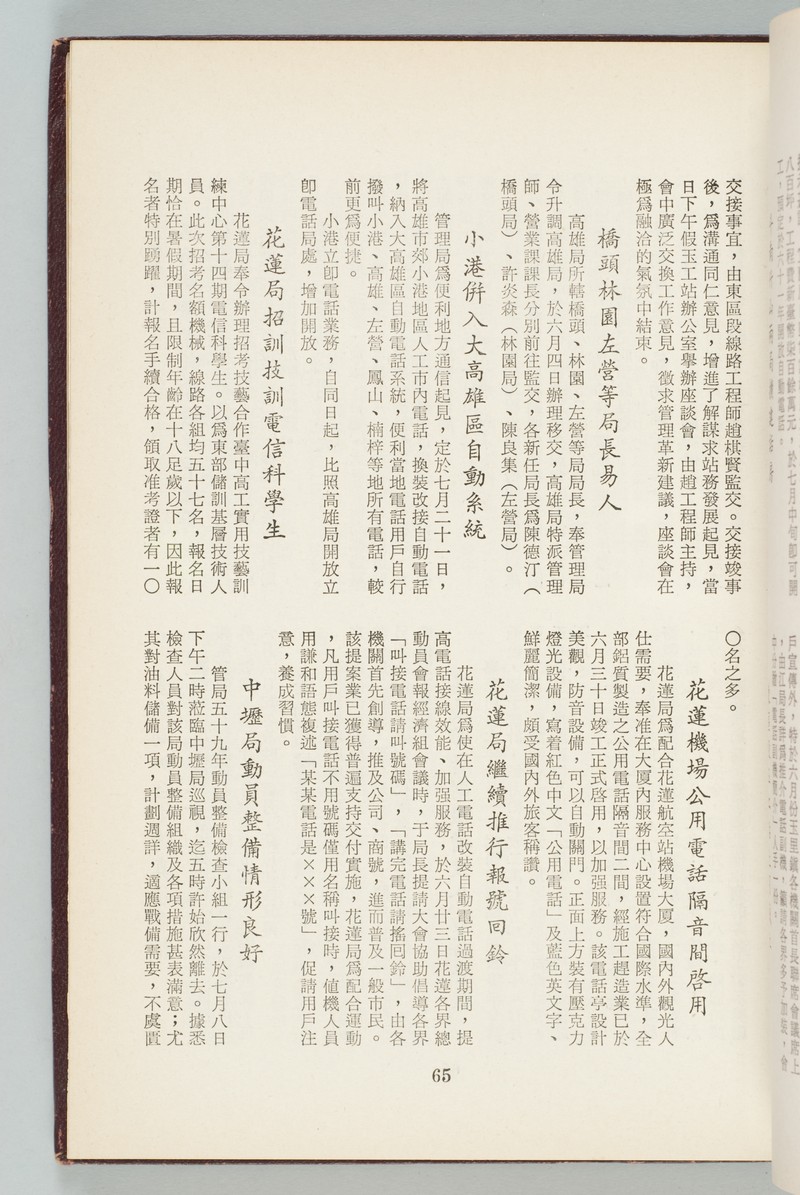 交接事宜，由東區段線路工程師趙棋賢監交。交接竣事
後，爲溝通同仁意見，增進了解謀求站務發展起見，當
日下午假玉工站辦公室舉辦座談會，由趙工程師主持，
會中廣泛交換工作意見，徵求管理革新建議，座談會在
極爲融洽的氣氛中結束。
橋頭林園左營等局長易人
高雄局所轄橋頭、林園、左營等局局長，奉管理局
令升調高雄局，於六月四日辦理移交，高雄局特派管理
師、營業課課長分別前往監交，各新任局長爲陳德汀（
橋頭局）、許炎森（林園局）、陳良集（左營局）。
小港併入大高雄區自動系統
管理局爲便利地方通信起見，定於七月二十一日，
將高雄市郊小港地區人工市內電話，換裝改接自動電話
，納入大高雄區自動電話系統，便利當地電話用戶自行
撥叫小港、高雄、左營、鳳山、楠梓等地所有電話，較
前更爲便捷。
小港立卽電話業務，自同日起，比照高雄局開放立
卽電話局處，增加開放。
花蓮局招訓技訓電信科學生
花蓮局奉令辦理招考技藝合作臺中高工實用技藝訓
練中心第十四期電信科學生。以爲東部儲訓基層技術人
員。此次招考名額機械，線路各組均五十七名，報名日
期恰在暑假期間，且限制年齡在十八足歲以下，因此報
名者特別踴躍，計報名手續合格，領取准考證者有一〇
〇名之多。
花蓮機場公用電話隔音間啓用
花蓮局爲配合花蓮航空站機場大厦，國內外觀光人
仕需要，奉准在大厦內服務中心設置符合國際水準，全
部鋁質製造之公用電話隔音間二間，經施工趕造業已於
六月三十日竣工正式啓用，以加强服務。該電話亭設計
美觀，防音設備，可以自動關門。正面上方裝有壓克力
燈光設備，寫着紅色中文「公用電話」及藍色英文字、
鮮麗簡潔，頗受國內外旅客稱讚。
花蓮局繼續推行報號回鈴
花蓮局爲使在人工電話改裝自動電話過渡期間，提
高電話接線效能、加强服務，於六月廿三日花蓮各界總
動員會報經濟組會議時，于局長提請大會協助倡導各界
「叫接電話請叫號碼」，「講完電話請搖回鈴」，由各
機關首先創導，推及公司、商號，進而普及一般市民。
該提案業已獲得普遍支持交付實施，花蓮局爲配合運動
，凡用戶叫接電話不用號碼僅用名稱叫接時，値機人員
用謙和語態複述「某某電話是×××號」，促請用戶注
意，養成習慣。
中壢局動員整備情形良好
管局五十九年動員整備檢查小組一行，於七月八日
下午二時蒞臨中壢局巡視，迄五時許始欣然離去。據悉
檢查人員對該局動員整備組織及各項措施甚表滿意；尤
其對油料儲備一項，計劃週詳，適應戰備需要，不虞匱
65